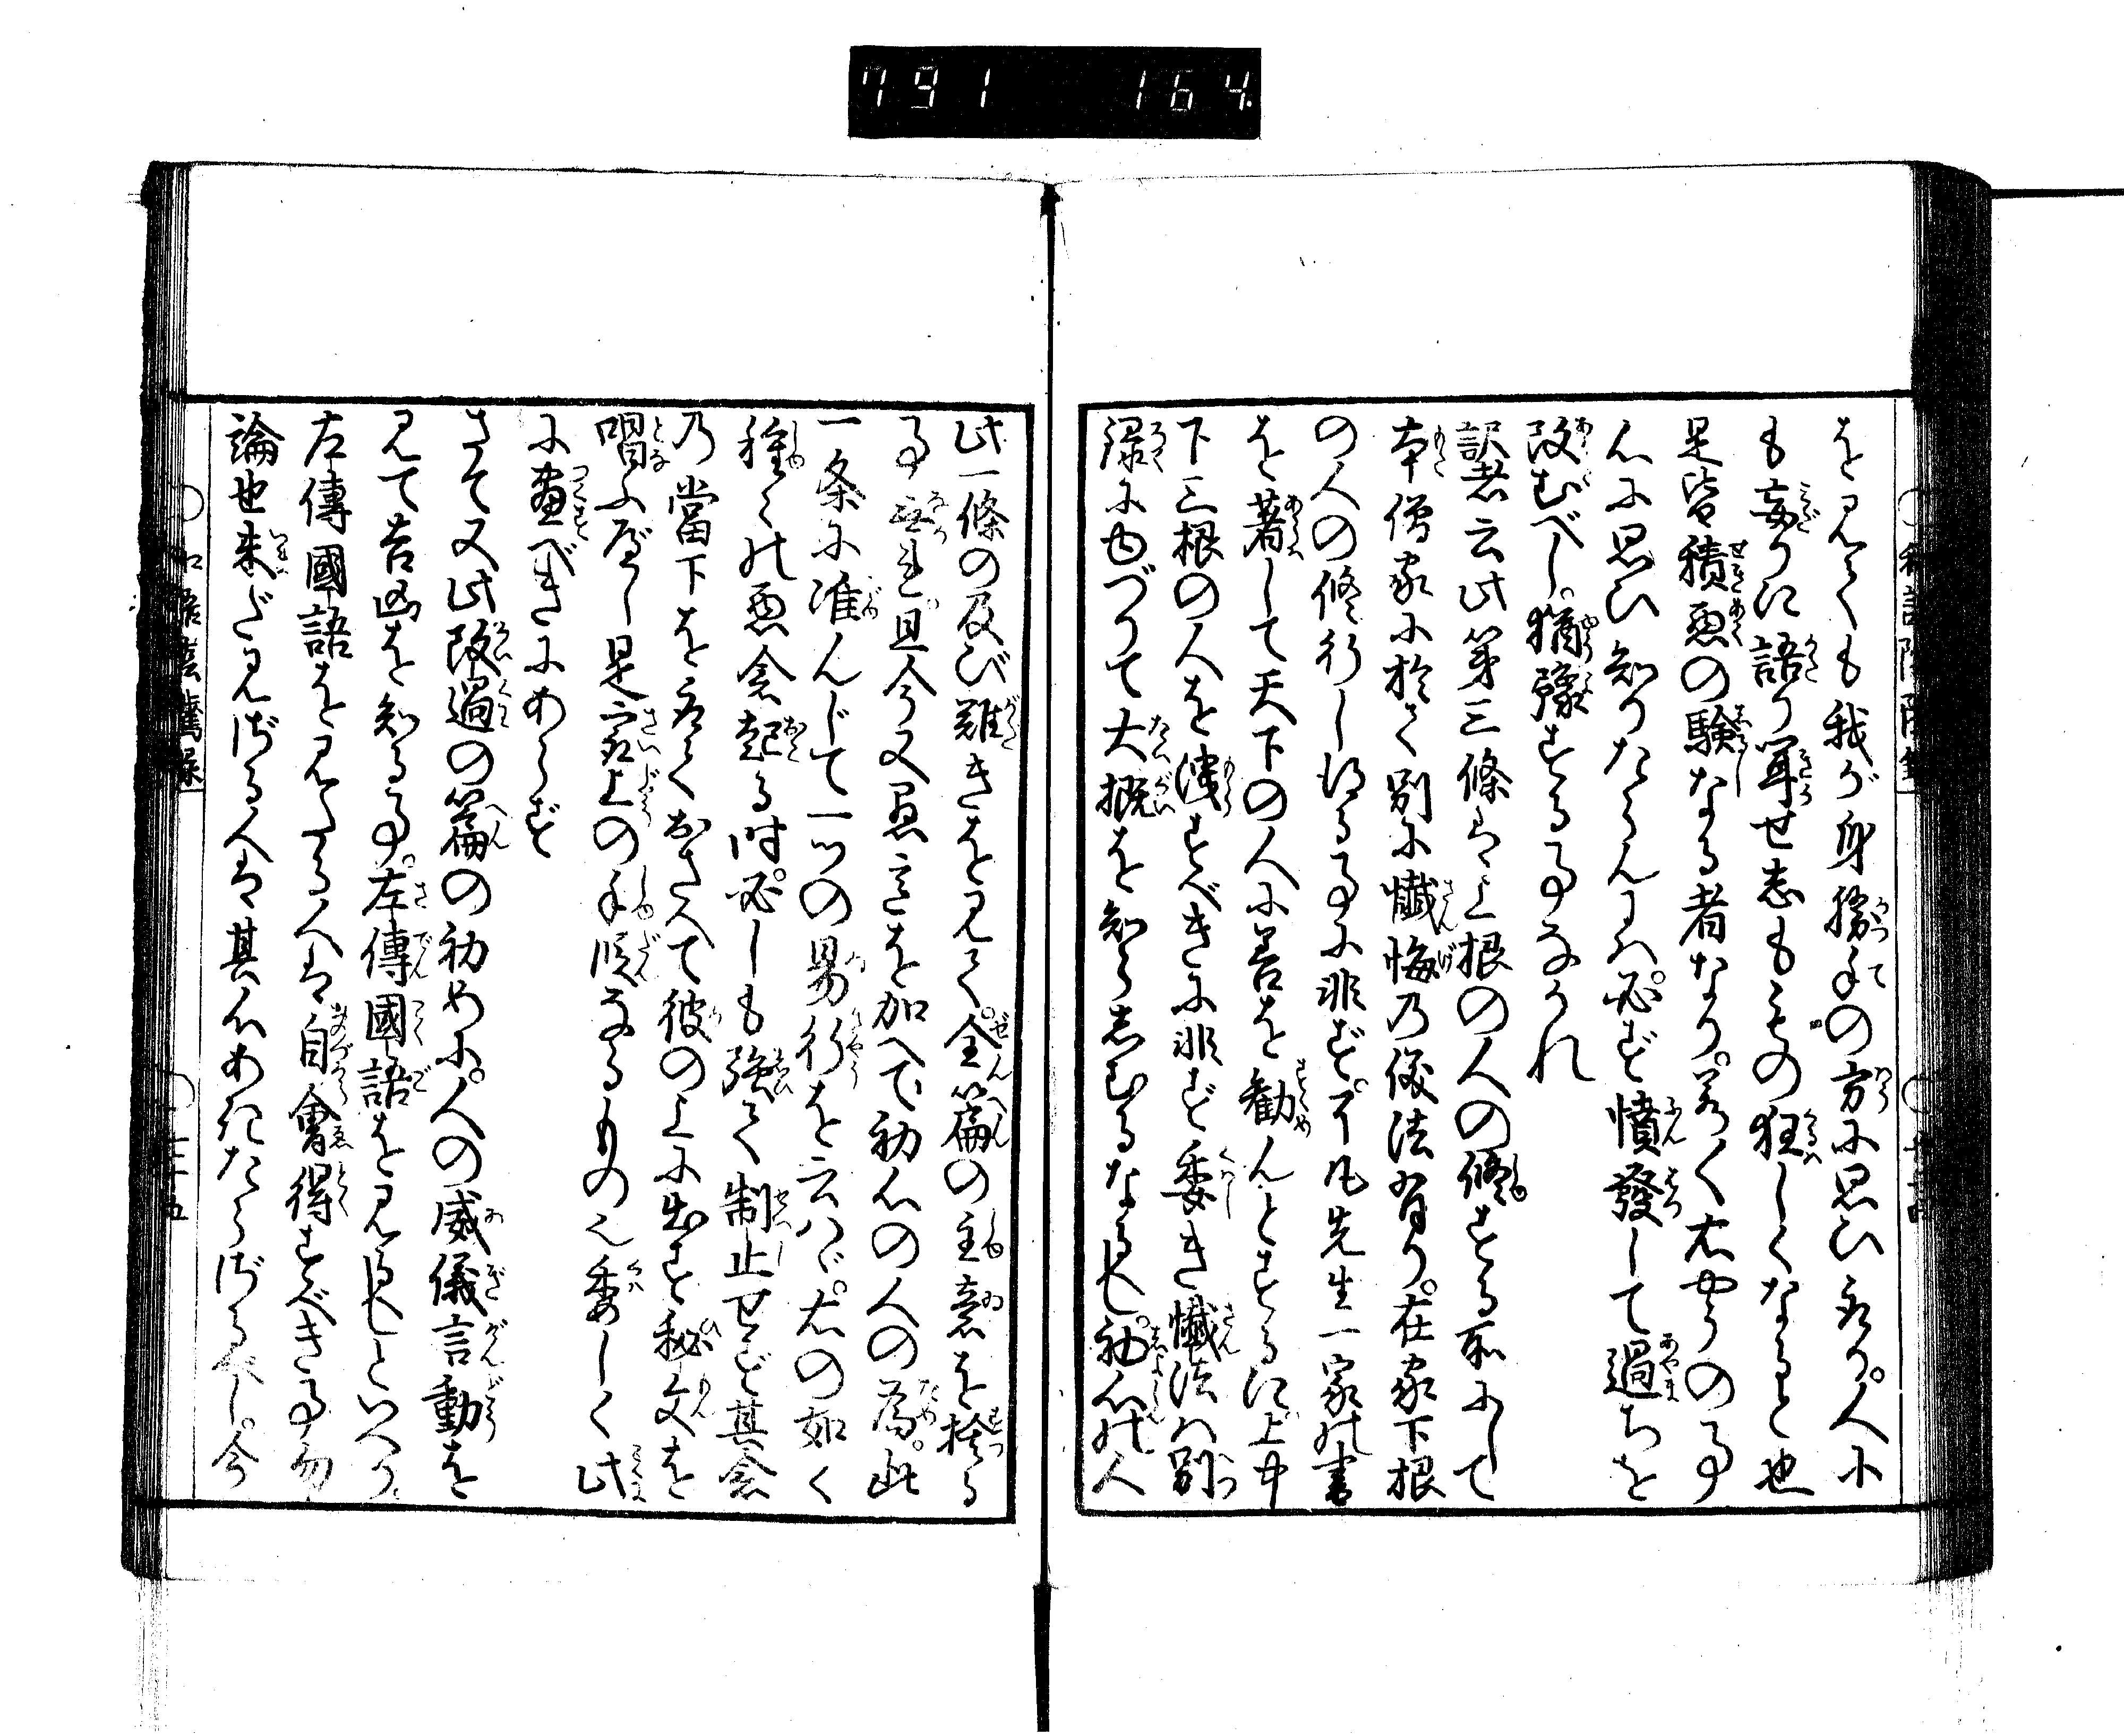 791 164
をみても我が身勝手の方に思ひ取り。人に
も妄りに語り聞せ志もものの狂しくなると也
是皆積悪の験なる者なり。若く右やうの事
心に思ひ知りたらんには。必ず憤發して過ちを
改むべし。猶豫する事なかれ
訳者云此第三條は上根の人の修する所にして
本僧家に於て別に懺悔の後法有り。在家下根
の人の修行し得る事に非ず。凡先生一家の書
を著して天下の人に善を勧んとするに上中
下三根の人を洩すべきに非ず委き懺法は別
録にゆづりて大概を知らしむるなるべし。初心の人
此一條の及び難きをみて。全篇の主意を捨る
事なかれ。且今又愚意を加へて初心の人の為。此
一条に准んじて一ツの易行を云はゞ。右の如く
種々の悪念起る時。必しも強て制止せず其念
乃當下を取ておさへて彼の上に出す秘文を
唱ふべし是最上の手段なるもの也委しく此
に盡べきにあらず
さて又此改過の篇の初めに。人の威儀言動を
みて吉凶を知る事。左傳國語を見るべしといへり。
左傳國語をみたる人は自會得すべき事勿
論也未だみざる人は其心あきたらざるべし。今
和語陰隲録
三十五